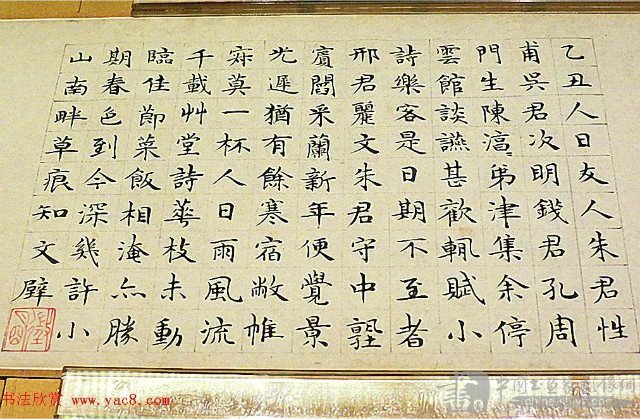 乙丑人日友人朱君性
甫吳君次明錢君孔周
門生陳淳弟津集余停
雲館談讌甚歡輒賦小
詩樂客是日期不至者
邢君麗文朱君守中塾
賓閻采蘭新年便覺景
光遲猶有餘寒宿敝帷
寂莫一杯人日雨風流
千載艸堂詩華枝未動
臨佳節菜飯相淹亦勝
期春色到今深幾許小
山南畔草痕知文壁
书法欣赏 www.yac8.com